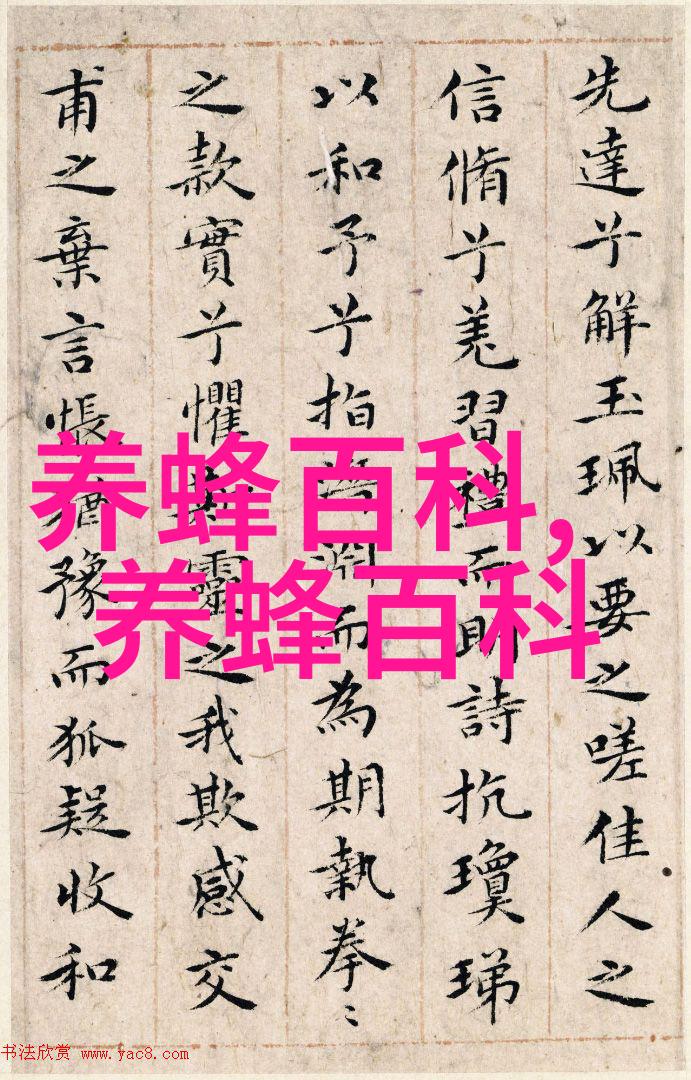 先達兮解玉珮以要之嗟佳人之
信脩兮羌習禮而明詩抗瓊珶
以和予兮指潛淵而為期執拳〻
之款實兮懼斯靈之我欺感交
甫之棄言悵猶豫而狐疑收和
养蜂百科,
养蜂百科
书法欣赏 www.yac8.com